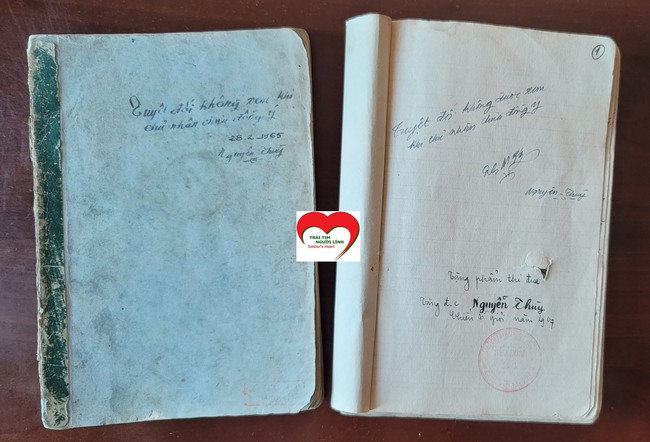 Tuyệt đối không xem khi
chủ nhân chưa đồng ý
28.2.1965
Nguyễn Thuỳ
TRÁI TIM
NGƯỜI LÍNH
Soldier's Heart
1
Tuyệt đối không được xem
khi chủ nhân chưa đồng ý
Nguyễn Thuỳ
Tặng phẩm thi đua
Tặng đ/c Nguyễn Thùy
Chiến sĩ giỏi năm